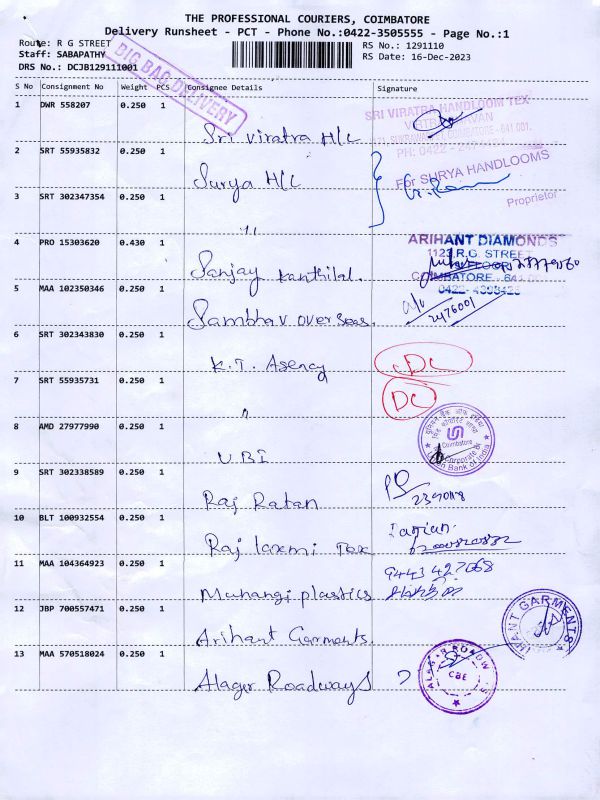 THE PROFESSIONAL COURIERS, COIMBATORE
Delivery Runsheet - PCT - Phone No.:0422-3505555 - Page No.:1
Route: R G STREET
RS No.: 1291110
Staff: SABAPATHY
RS Date: 16-Dec-2023
DRS No.: DCJB129111001
BIG BAG DELIVERY
S No Consignment No Weight PCS Consignee Details Signature
1 DWR 558207 0.250 1 Sri Viratra H/L
SRI VIRATRA HANDLOOM TEX
COIMBATORE - 641 001.
PH: 0422 -
2 SRT 55935832 0.250 1 Surya H/L
For SURYA HANDLOOMS
Proprietor
3 SRT 302347354 0.250 1 "
4 PRO 15303620 0.430 1 Sanjay Kanthilal
ARIHANT DIAMONDS
1123, R.G. STREET
COIMBATORE - 641 001
0422-
5 MAA 102350346 0.250 1 Sambhav overseas.
2476001
6 SRT 302343830 0.250 1 K.T. Agency DC
7 SRT 55935731 0.250 1 " DC
8 AMD 27977990 0.250 1 UBI
यूनियन बैंक ऑफ इंडिया
Coimbatore
Union Bank of India
9 SRT 302338589 0.250 1 Raj Ratan
10 BLT 100932554 0.250 1 Raj laxmi Tex
11 MAA 104364923 0.250 1 Muhangi plastics 9443427068
12 JBP 700557471 0.250 1 Arihant Garments.
ARIHANT GARMENTS
13 MAA 570518024 0.250 1 Alager Roadways
CBE